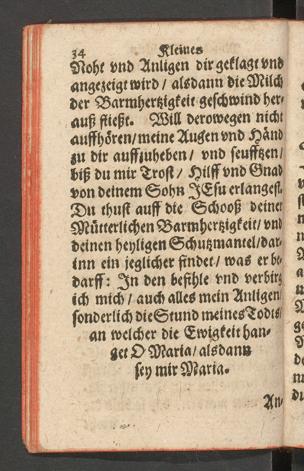 34 Kleines
Noht vnd Anligen dir geklagt vnd
angezeigt wird / alsdann die Milch
der Barmhertzigkeit geschwind her-
auß fließt. Will derowegen nicht
auffhören / meine Augen vnd Händ
zu dir auffzuheben / vnd seufftzen /
biß du mir Trost / Hilff vnd Gnad
von deinem Sohn JEsu erlangest.
Du thust auff die Schooß deiner
Mütterlichen Barmhertzigkeit / vnd
deinen heyligen Schutzmantel / dar-
inn ein jeglicher findet / was er be-
darff: In den befihle vnd verbirg
ich mich / auch alles mein Anligen /
sonderlich die Stund meines Todts /
an welcher die Ewigkeit han-
get O Maria / alsdann
sey mir Maria.
An-